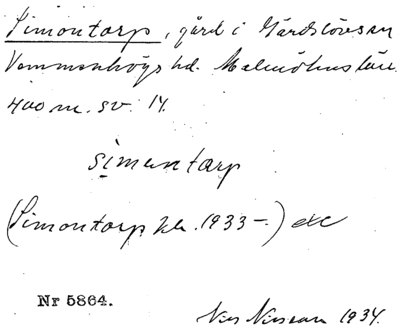 Simontorp, gård i Gärdslöv sn
Vemmenhögs hd. Malmöhus län.
400 m. sv. 14.
simontarp
(Simontorp kk. 1933-.) etc
Nr 5864.
Nils Nilsson 1934.